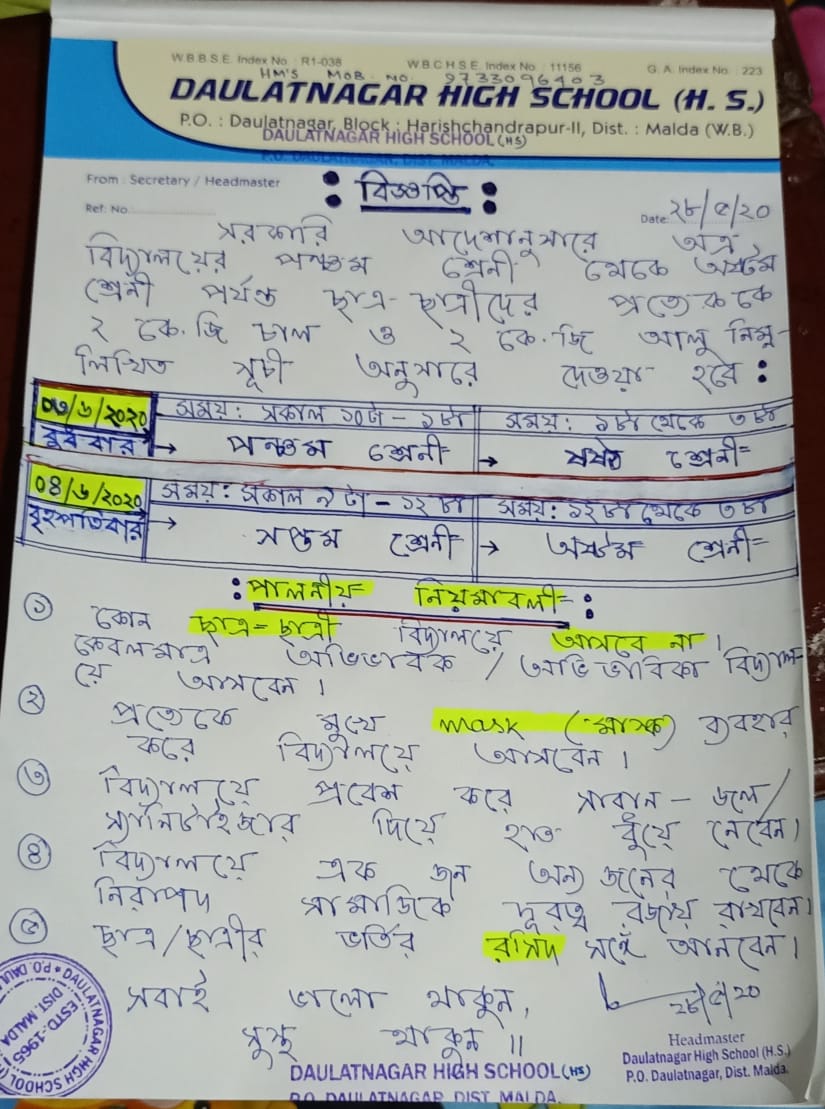 W.B.B.S.E. Index No. : R1-038 W.B.C.H.S.E. Index No. : 11156 G. A. Index No. : 223
HM'S MOB. NO. 9733096403
DAULATNAGAR HIGH SCHOOL (H. S.)
P.O. : Daulatnagar, Block : Harishchandrapur-II, Dist. : Malda (W.B.)
DAULATNAGAR HIGH SCHOOL (HS)
P.O. DAULATNAGAR, DIST. MALDA.
From : Secretary / Headmaster
: বিজ্ঞপ্তি :
Ref. No. Date: 28/৫/20
সরকারি আদেশানুসারে অত্র
বিদ্যালয়ের পঞ্চম শ্রেনী থেকে অষ্টম
শ্রেনী পর্যন্ত ছাত্র-ছাত্রীদের প্রত্যেককে
২ কে.জি চাল ও ২ কে.জি আলু নিম্ন-
লিখিত সূচী অনুসারে দেওয়া হবে :
০৩/৬/২০২০ সময়: সকাল ১০টা - ১টা সময়: ১টা থেকে ৩টা
বুধবার → পঞ্চম শ্রেনী → ষষ্ঠ শ্রেনী
০৪/৬/২০২০ সময়: সকাল ৯টা - ১২টা সময়: ১২টা থেকে ৩টা
বৃহস্পতিবার → সপ্তম শ্রেনী → অষ্টম শ্রেনী
: পালনীয় নিয়মাবলী :
১ কোন ছাত্র-ছাত্রী বিদ্যালয়ে আসবে না।
কেবলমাত্র অভিভাবক / অভিভাবিকা বিদ্যাল-
য়ে আসবেন।
২ প্রত্যেকে মুখে mask (মাস্ক) ব্যবহার
করে বিদ্যালয়ে আসবেন।
৩ বিদ্যালয়ে প্রবেশ করে সাবান - জলে/
স্যানিটাইজার দিয়ে হাত ধুয়ে নেবেন।
৪ বিদ্যালয়ে এক জন অন্য জনের থেকে
নিরাপদ সামাজিক দূরত্ব বজায় রাখবেন।
৫ ছাত্র/ছাত্রীর ভর্তির রসিদ সঙ্গে আনবেন।
সবাই ভালো থাকুন,
28/৫/20
সুস্থ থাকুন॥
Headmaster
Daulatnagar High School (H.S.)
P.O. Daulatnagar, Dist. Malda.
DAULATNAGAR HIGH SCHOOL (HS)
P.O. DAULATNAGAR DIST MALDA.
DAULATNAGAR HIGH SCHOOL
ESTD.-1965
DIST. MALDA